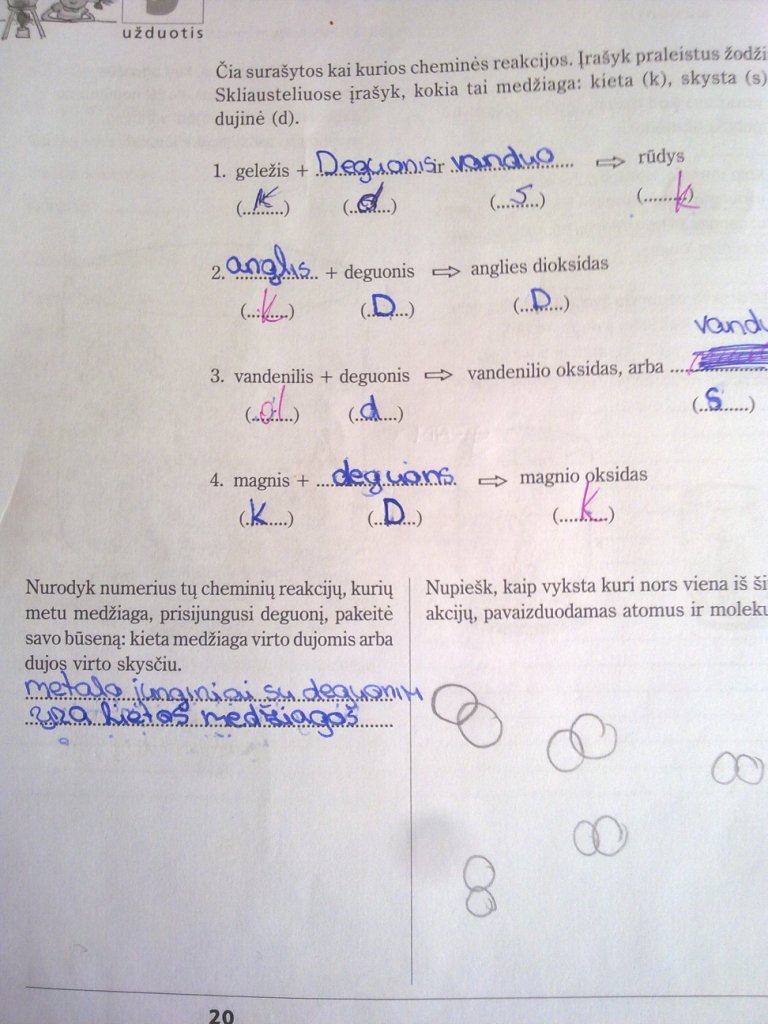 užduotis
Čia surašytos kai kurios cheminės reakcijos. Įrašyk praleistus žodži
Skliausteliuose įrašyk, kokia tai medžiaga: kieta (k), skysta (s)
dujinė (d).
1. geležis + Deguonis ir vanduo ⇨ rūdys
(K) (d) (s) (k)
2. anglis + deguonis ⇨ anglies dioksidas
(k) (D) (D)
vandu
3. vandenilis + deguonis ⇨ vandenilio oksidas, arba
(d) (d) (s)
4. magnis + deguonis ⇨ magnio oksidas
(k) (D) (k)
Nurodyk numerius tų cheminių reakcijų, kurių
metu medžiaga, prisijungusi deguonį, pakeitė
savo būseną: kieta medžiaga virto dujomis arba
dujos virto skysčiu.
metalo junginiai su deguonim
yra kietos medžiagos
Nupiešk, kaip vyksta kuri nors viena iš ši
akcijų, pavaizduodamas atomus ir moleku
20